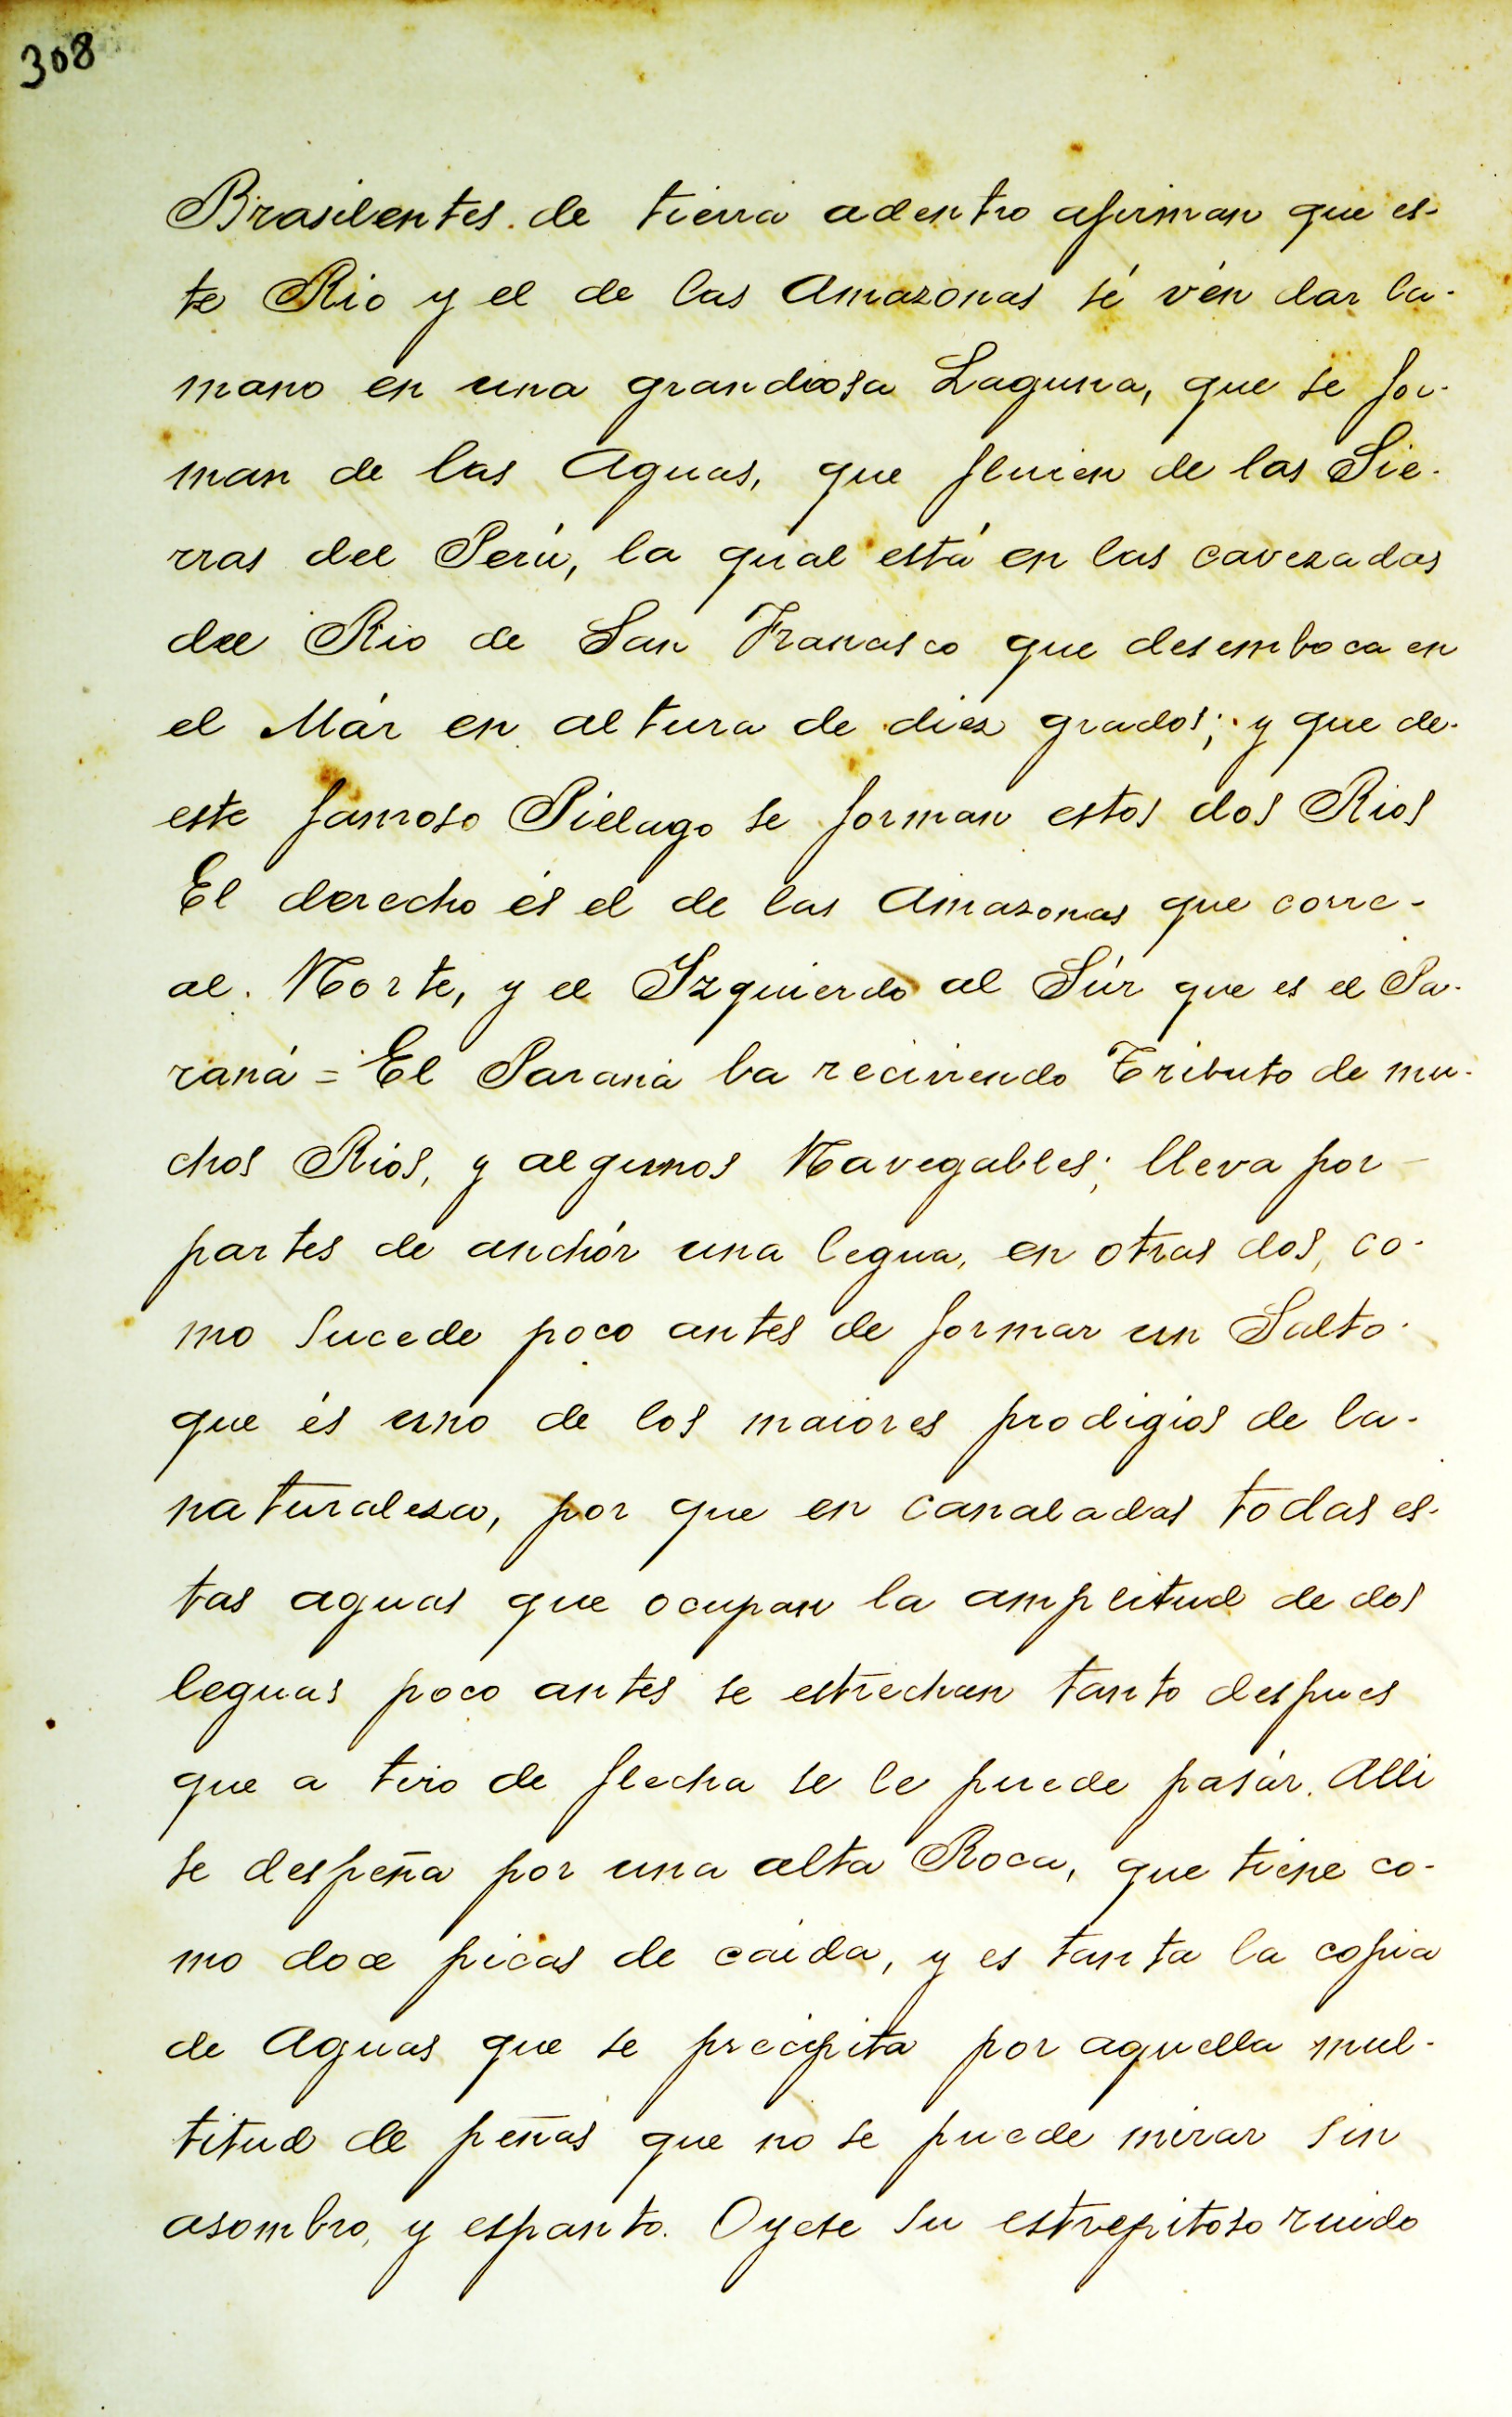 308
Brasilentes de tierra adentro afirman que es-
te Rio y el de las Amazonas sé vén dar la-
mano en una grandiosa Laguna, que se for-
man de las Aguas, que fluien de las Sie-
rras del Perú, la qual está en las cavezadas
del Rio de San Francisco que desemboca en
el Már en altura de diez grados; y que de-
este famoso Pielago se forman estos dos Rios
El derecho és el de las Amazonas que corre-
al Norte, y el Izquierdo al Súr que es el Pa-
raná = El Paraná ba reciviendo Tributo de mu-
chos Rios, y algunos Navegables; lleva por-
partes de anchór una legua, en otras dos, co-
mo sucede poco antes de formar un Salto-
que és uno de los maiores prodigios de la-
naturaleza, por que en canaladas todas es-
tas aguas que ocupan la amplitud de dos
leguas poco antes se estrechan tanto despues
que a tiro de flecha se le puede pasár. Alli
se despeña por una alta Roca, que tiene co-
mo doce picas de caida, y es tanta la copia
de Aguas que se precipita por aquella mul-
titud de peñas que no se puede mirar sin
asombro, y espanto. Oyese su estrepitoso ruido